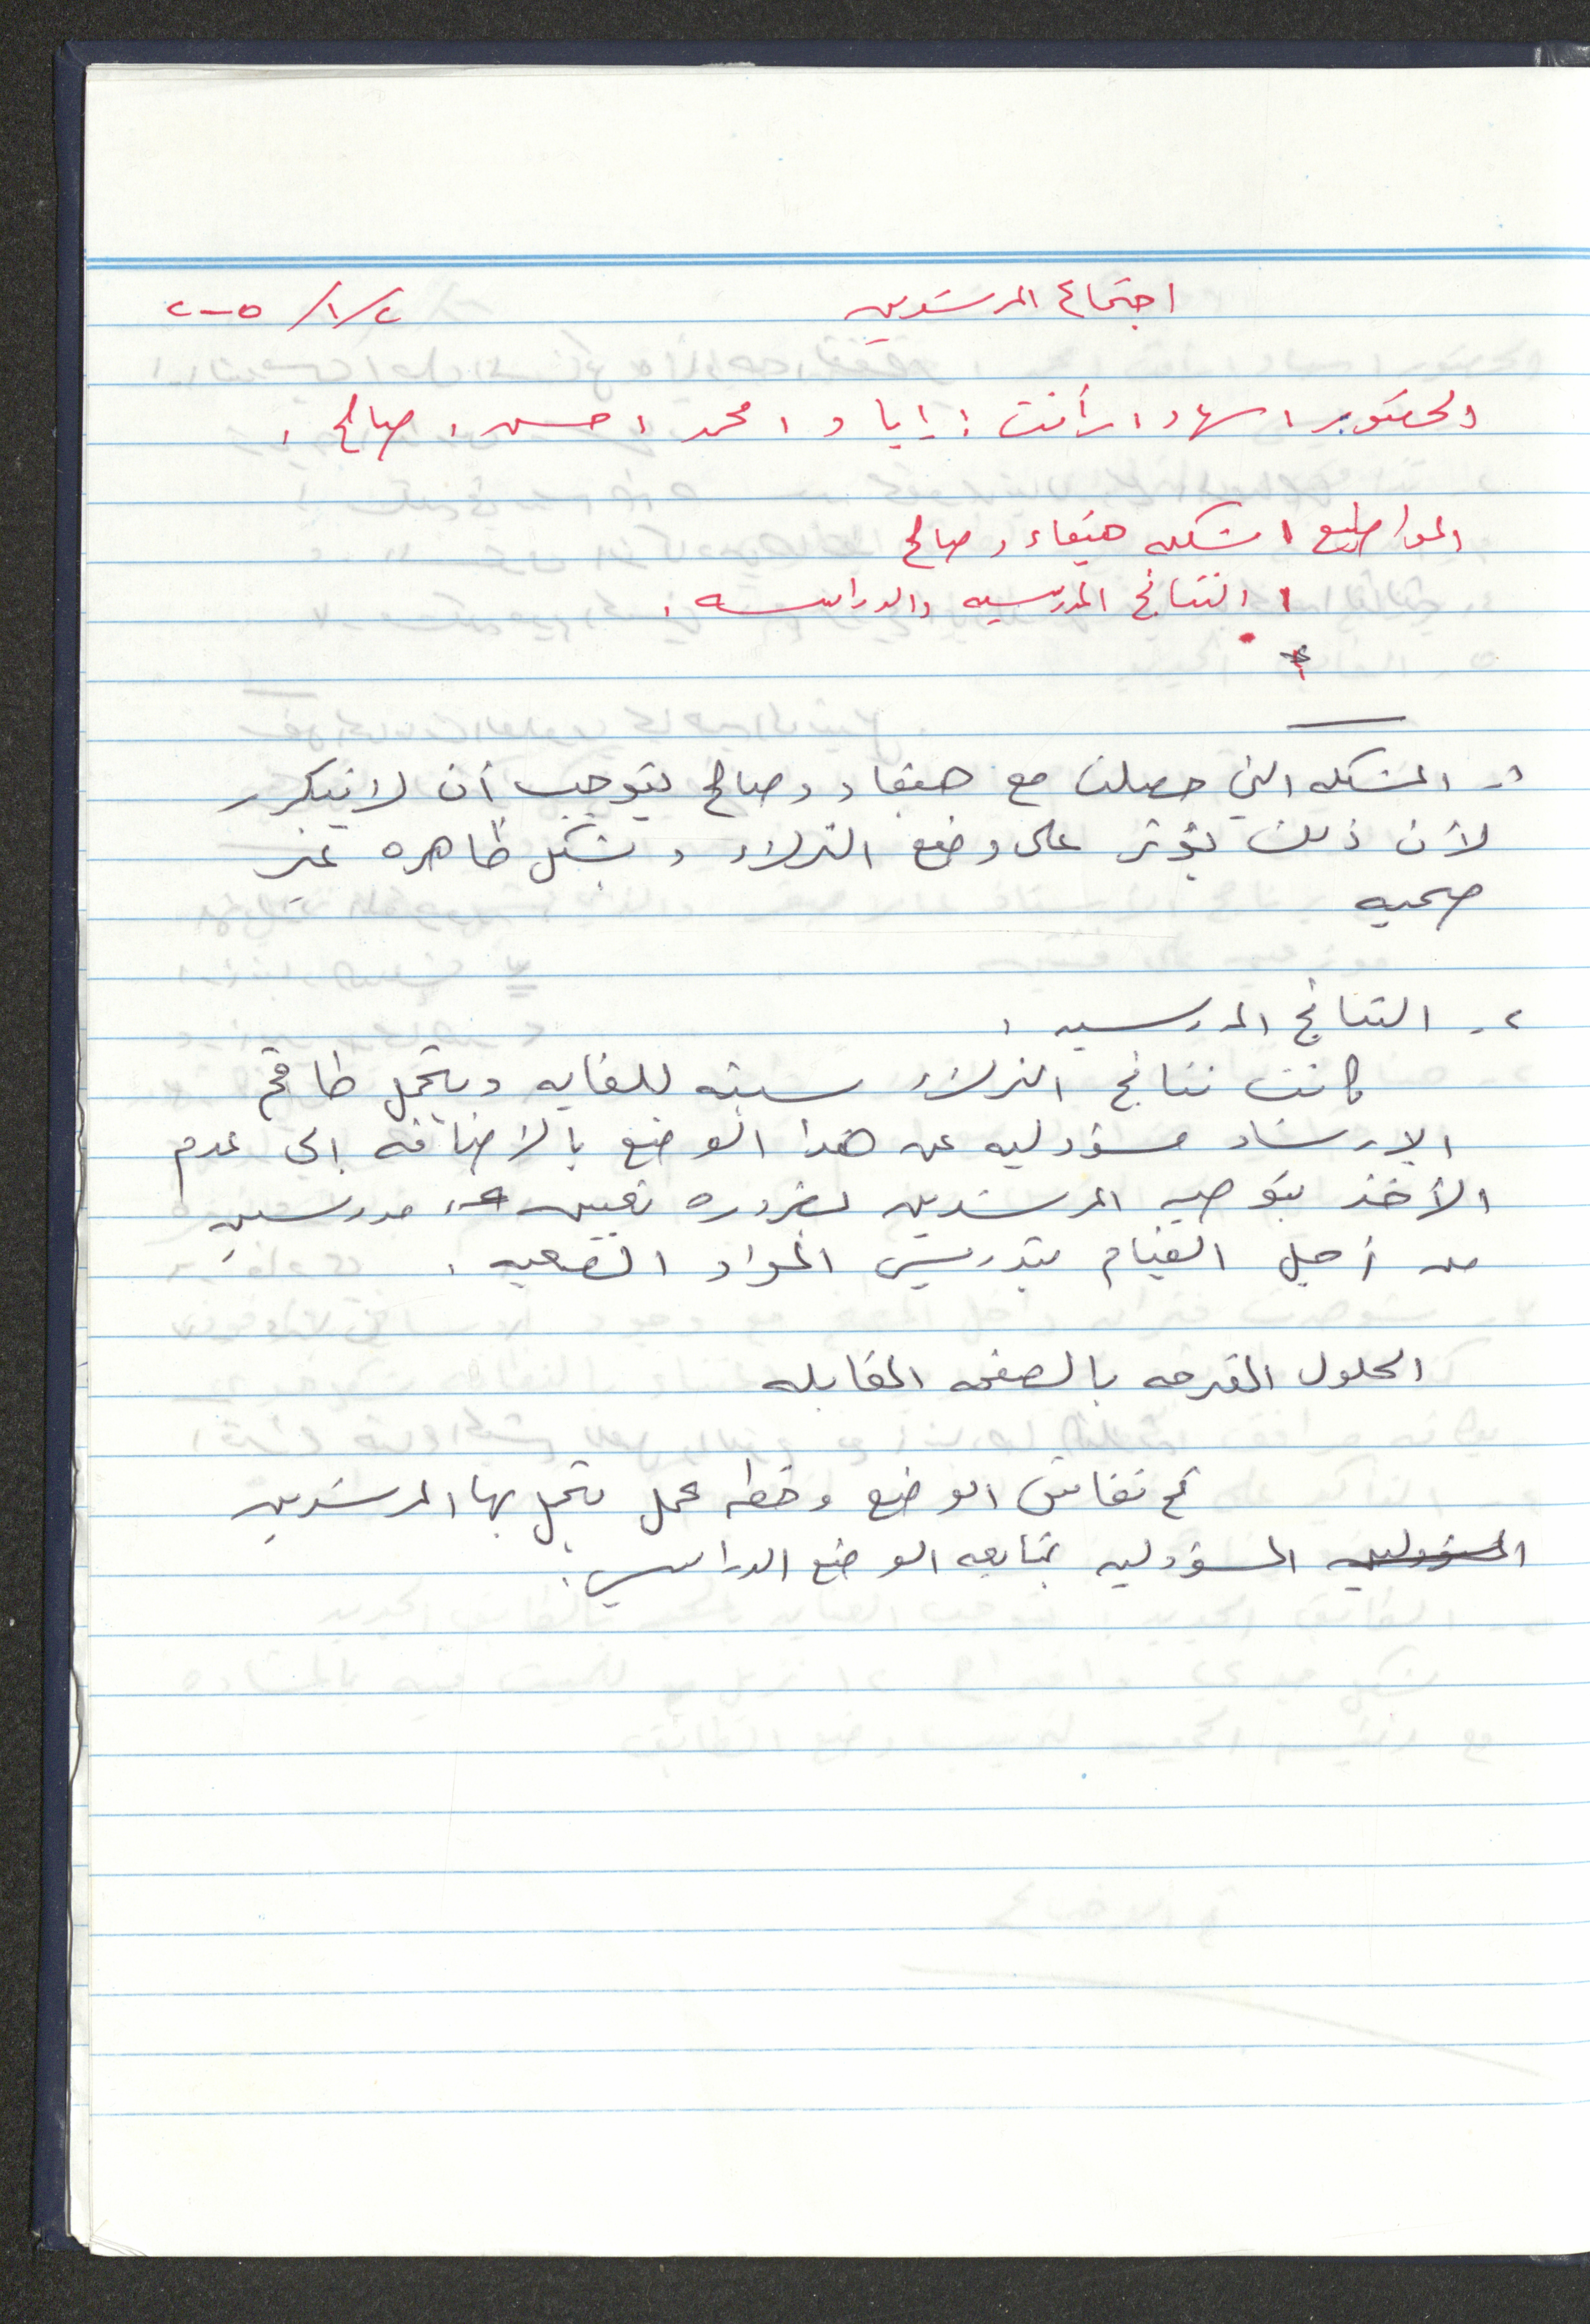 اجتماع المرشدين ٢/١/٢٠٠٥
الحضور: سهاد، رأفت، إياد، محمد، حسن، صالح.
المواضيع: مشكله هيفاء وصالح
: النتائج المدرسيه والدراسه.
١- المشكله التي حصلت مع هيفاء وصالح يتوجب أن لا تتكرر
لأن ذلك يؤثر على وضع النزلاء وتشكل ظاهره غير
صحيه
٢- النتائج المدرسيه:
كانت نتائج النزلاء سيئه للغايه ويتحمل طاقم
الارشاد مسؤوليه عن هذا الوضع بالاضافه إلى عدم
الأخذ بتوصيه المرشدين بضروره تعيين مدرسين
من أجل القيام بتدريس المواد الصعبه.
الحلول المقترحه بالصفحه المقابله
تم نقاش الوضع وخطه عمل يتحمل بها المرشدين
المسؤوليه المسؤوليه بمتابعه الوضع الدراسي.